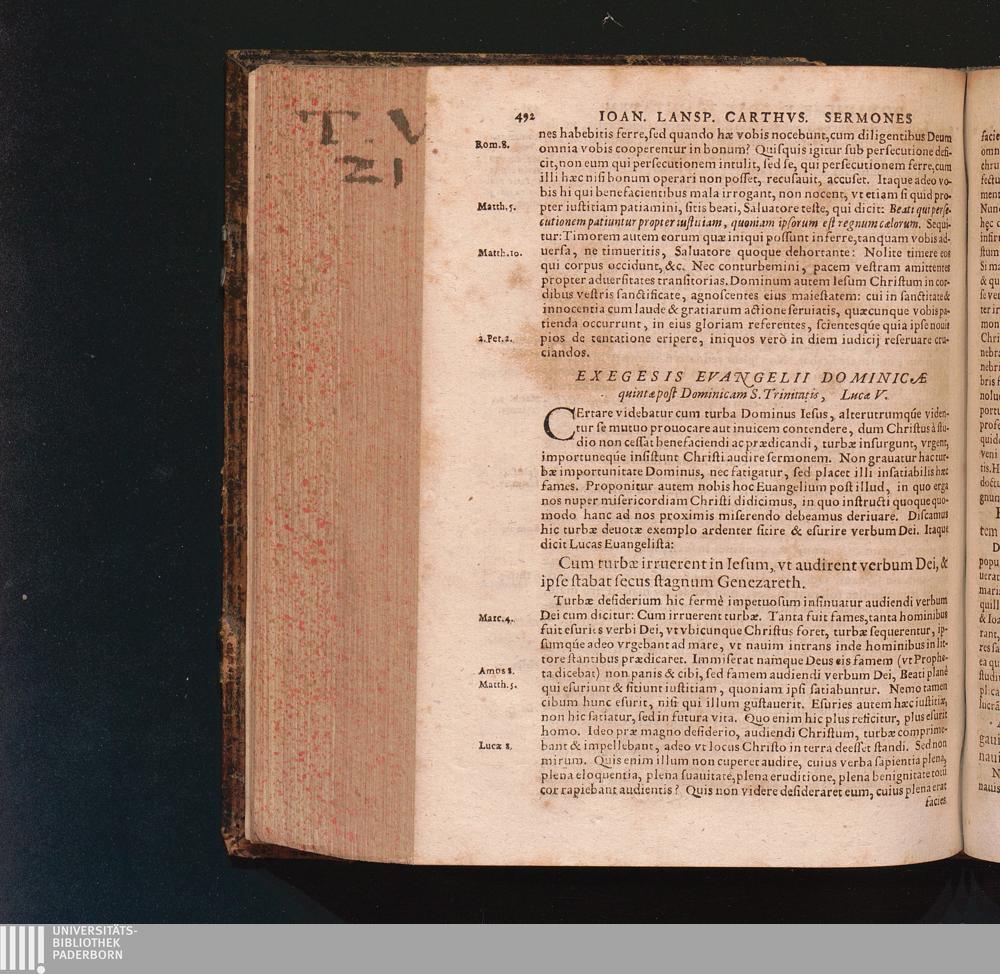 T. V
ZI
492 IOAN. LANSP. CARTHVS. SERMONES
nes habebitis ferre, sed quando hæ vobis nocebunt, cum diligentibus Deum
Rom. 8. omnia vobis cooperentur in bonum? Quisquis igitur sub persecutione defi-
cit, non eum qui persecutionem intulit, sed se, qui persecutionem ferre, cum
illi hæc nisi bonum operari non posset, recusauit, accuset. Itaque adeo vo-
bis hi qui benefacientibus mala irrogant, non nocent, vt etiam si quid pro-
Matth. 5. pter iustitiam patiamini, sitis beati, Saluatore teste, qui dicit: Beati qui perse-
cutionem patiuntur propter iustitiam, quoniam ipsorum est regnum cælorum. Sequi-
tur: Timorem autem eorum quæ iniqui possunt inferre, tanquam vobis ad-
Matth. 10. uersa, ne timueritis, Saluatore quoque dehortante: Nolite timere eos
qui corpus occidunt, &c. Nec conturbemini, pacem vestram amittentes
propter aduersitates transitorias. Dominum autem Iesum Christum in cor-
dibus vestris sanctificate, agnoscentes eius maiestatem: cui in sanctitate &
innocentia cum laude & gratiarum actione seruiatis, quæcunque vobis pa-
tienda occurrunt, in eius gloriam referentes, scientesq́ue quia ipse nouit
2. Pet. 2. pios de tentatione eripere, iniquos verò in diem iudicij reseruare cru-
ciandos.
EXEGESIS EVANGELII DOMINICÆ
quintæ post Dominicam S. Trinitatis, Lucæ V.
CErtare videbatur cum turba Dominus Iesus, alterutrumq́ue viden-
tur se mutuo prouocare aut inuicem contendere, dum Christus à stu-
dio non cessat benefaciendi ac prædicandi, turbæ insurgunt, vrgent,
importuneq́ue insistunt Christi audire sermonem. Non grauatur hac tur-
bæ importunitate Dominus, nec fatigatur, sed placet illi insatiabilis hæc
fames. Proponitur autem nobis hoc Euangelium post illud, in quo erga
nos nuper misericordiam Christi didicimus, in quo instructi quoque quo-
modo hanc ad nos proximis miserendo debeamus deriuare. Discamus
hic turbæ deuotæ exemplo ardenter sitire & esurire verbum Dei. Itaque
dicit Lucas Euangelista:
Cum turbæ irruerent in Iesum, vt audirent verbum Dei, &
ipse stabat secus stagnum Genezareth.
Turbæ desiderium hic fermè impetuosum insinuatur audiendi verbum
Marc. 4. Dei cum dicitur: Cum irruerent turbæ. Tanta fuit fames, tanta hominibus
fuit esuries verbi Dei, vt vbicunque Christus foret, turbæ sequerentur, ip-
sumq́ue adeo vrgebant ad mare, vt nauim intrans inde hominibus in lit-
tore stantibus prædicaret. Immiserat namque Deus eis famem (vt Prophe-
Amos 8. ta dicebat) non panis & cibi, sed famem audiendi verbum Dei, Beati planè
Matth. 5. qui esuriunt & sitiunt iustitiam, quoniam ipsi satiabuntur. Nemo tamen
cibum hunc esurit, nisi qui illum gustauerit. Esuries autem hæc iustitiæ,
non hic satiatur, sed in futura vita. Quo enim hic plus reficitur, plus esurit
homo. Ideo præ magno desiderio, audiendi Christum, turbæ comprime-
Lucæ 8. bant & impellebant, adeo vt locus Christo in terra deesset standi. Sed non
mirum. Quis enim illum non cuperet audire, cuius verba sapientia plena,
plena eloquentia, plena suauitate, plena eruditione, plena benignitate totũ
cor rapiebant audientis? Quis non videre desideraret eum, cuius plena erat
facies
UNIVERSITÄTS-
BIBLIOTHEK
PADERBORN